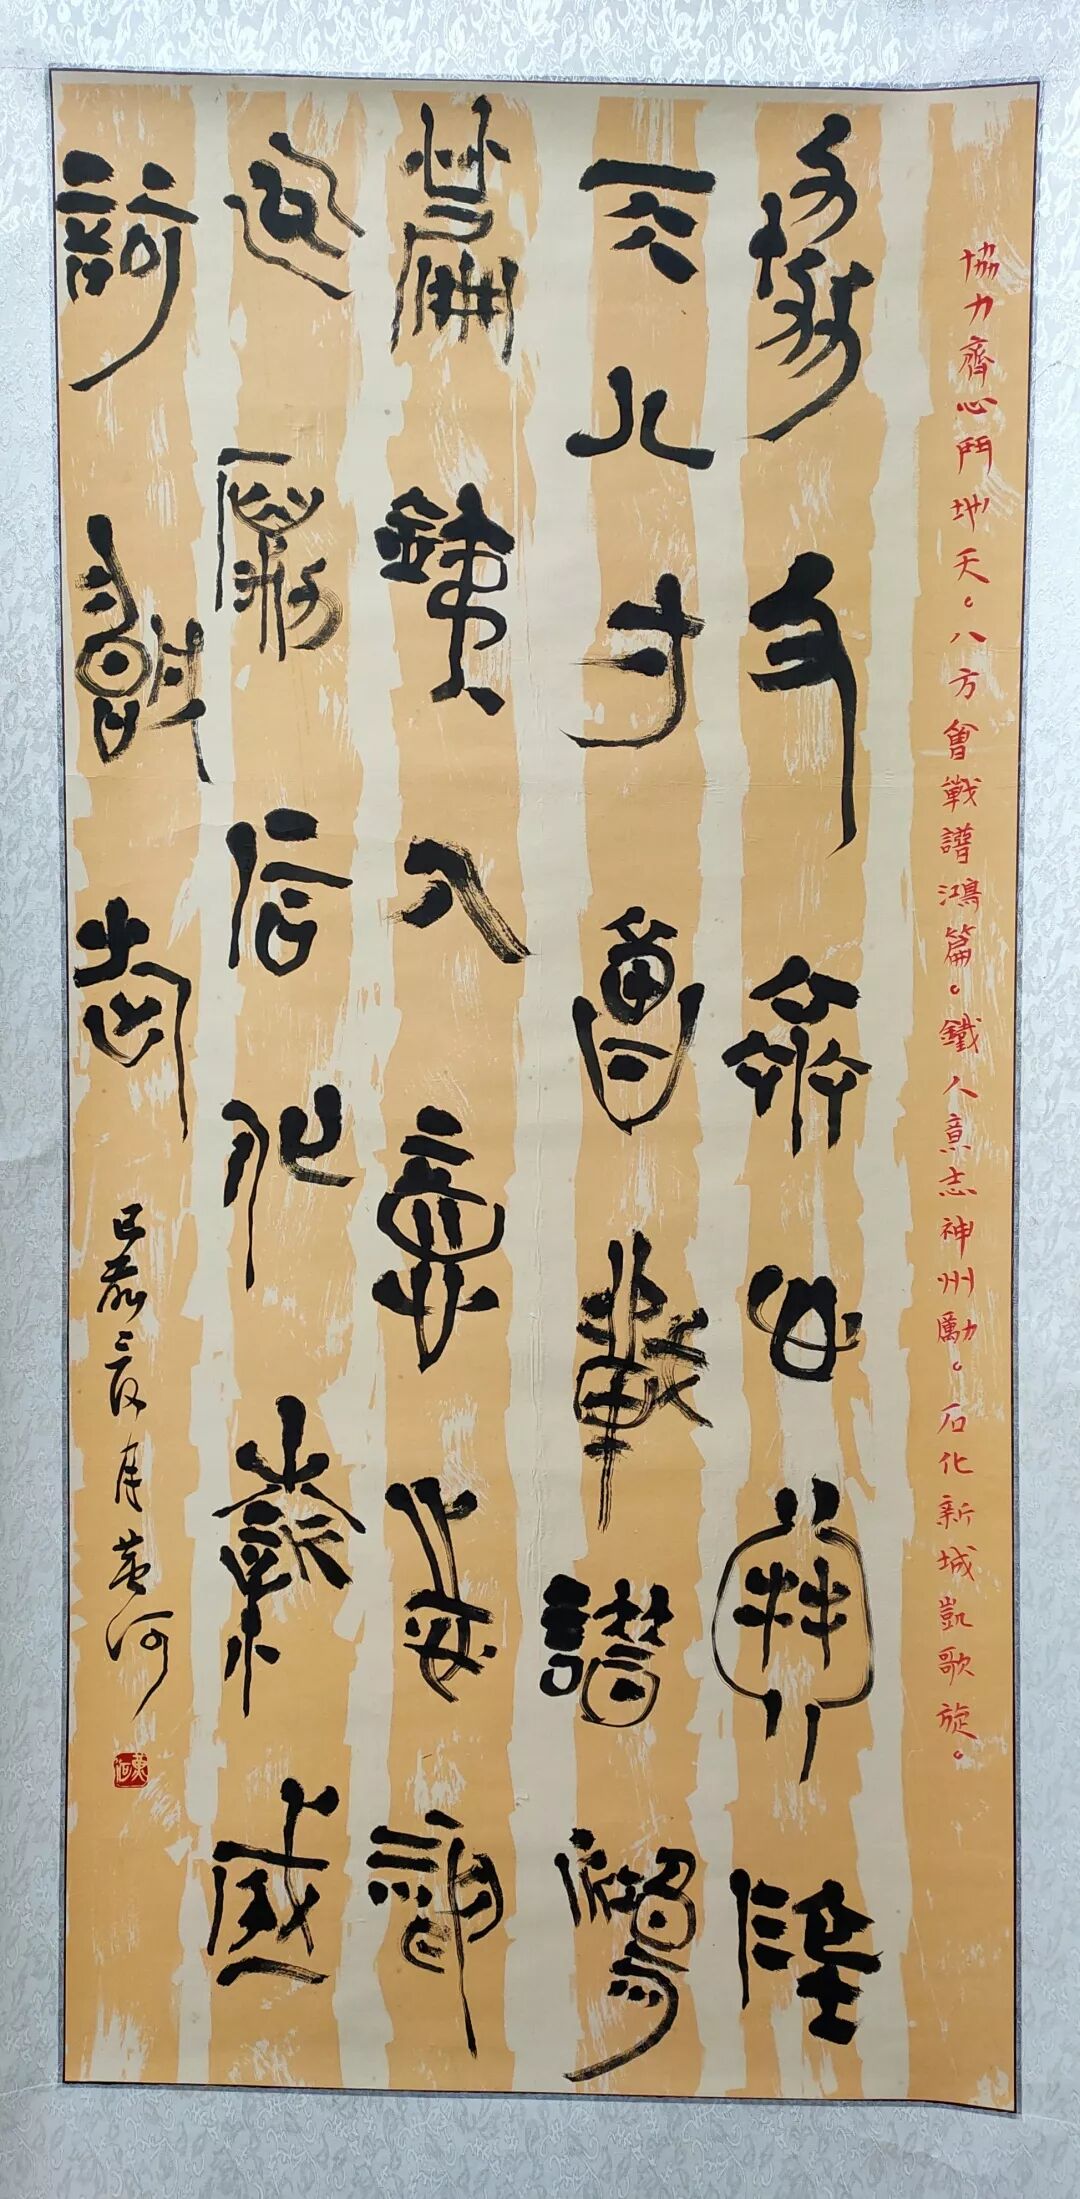 協力齊心鬥地天。八方會戰譜鴻篇。鐵人意志神州勵。石化新城凱歌旋。
協力齊心鬥地
天八方會戰譜鴻
篇鐵人意志神
州勵石化新城
凱歌旋
黃河